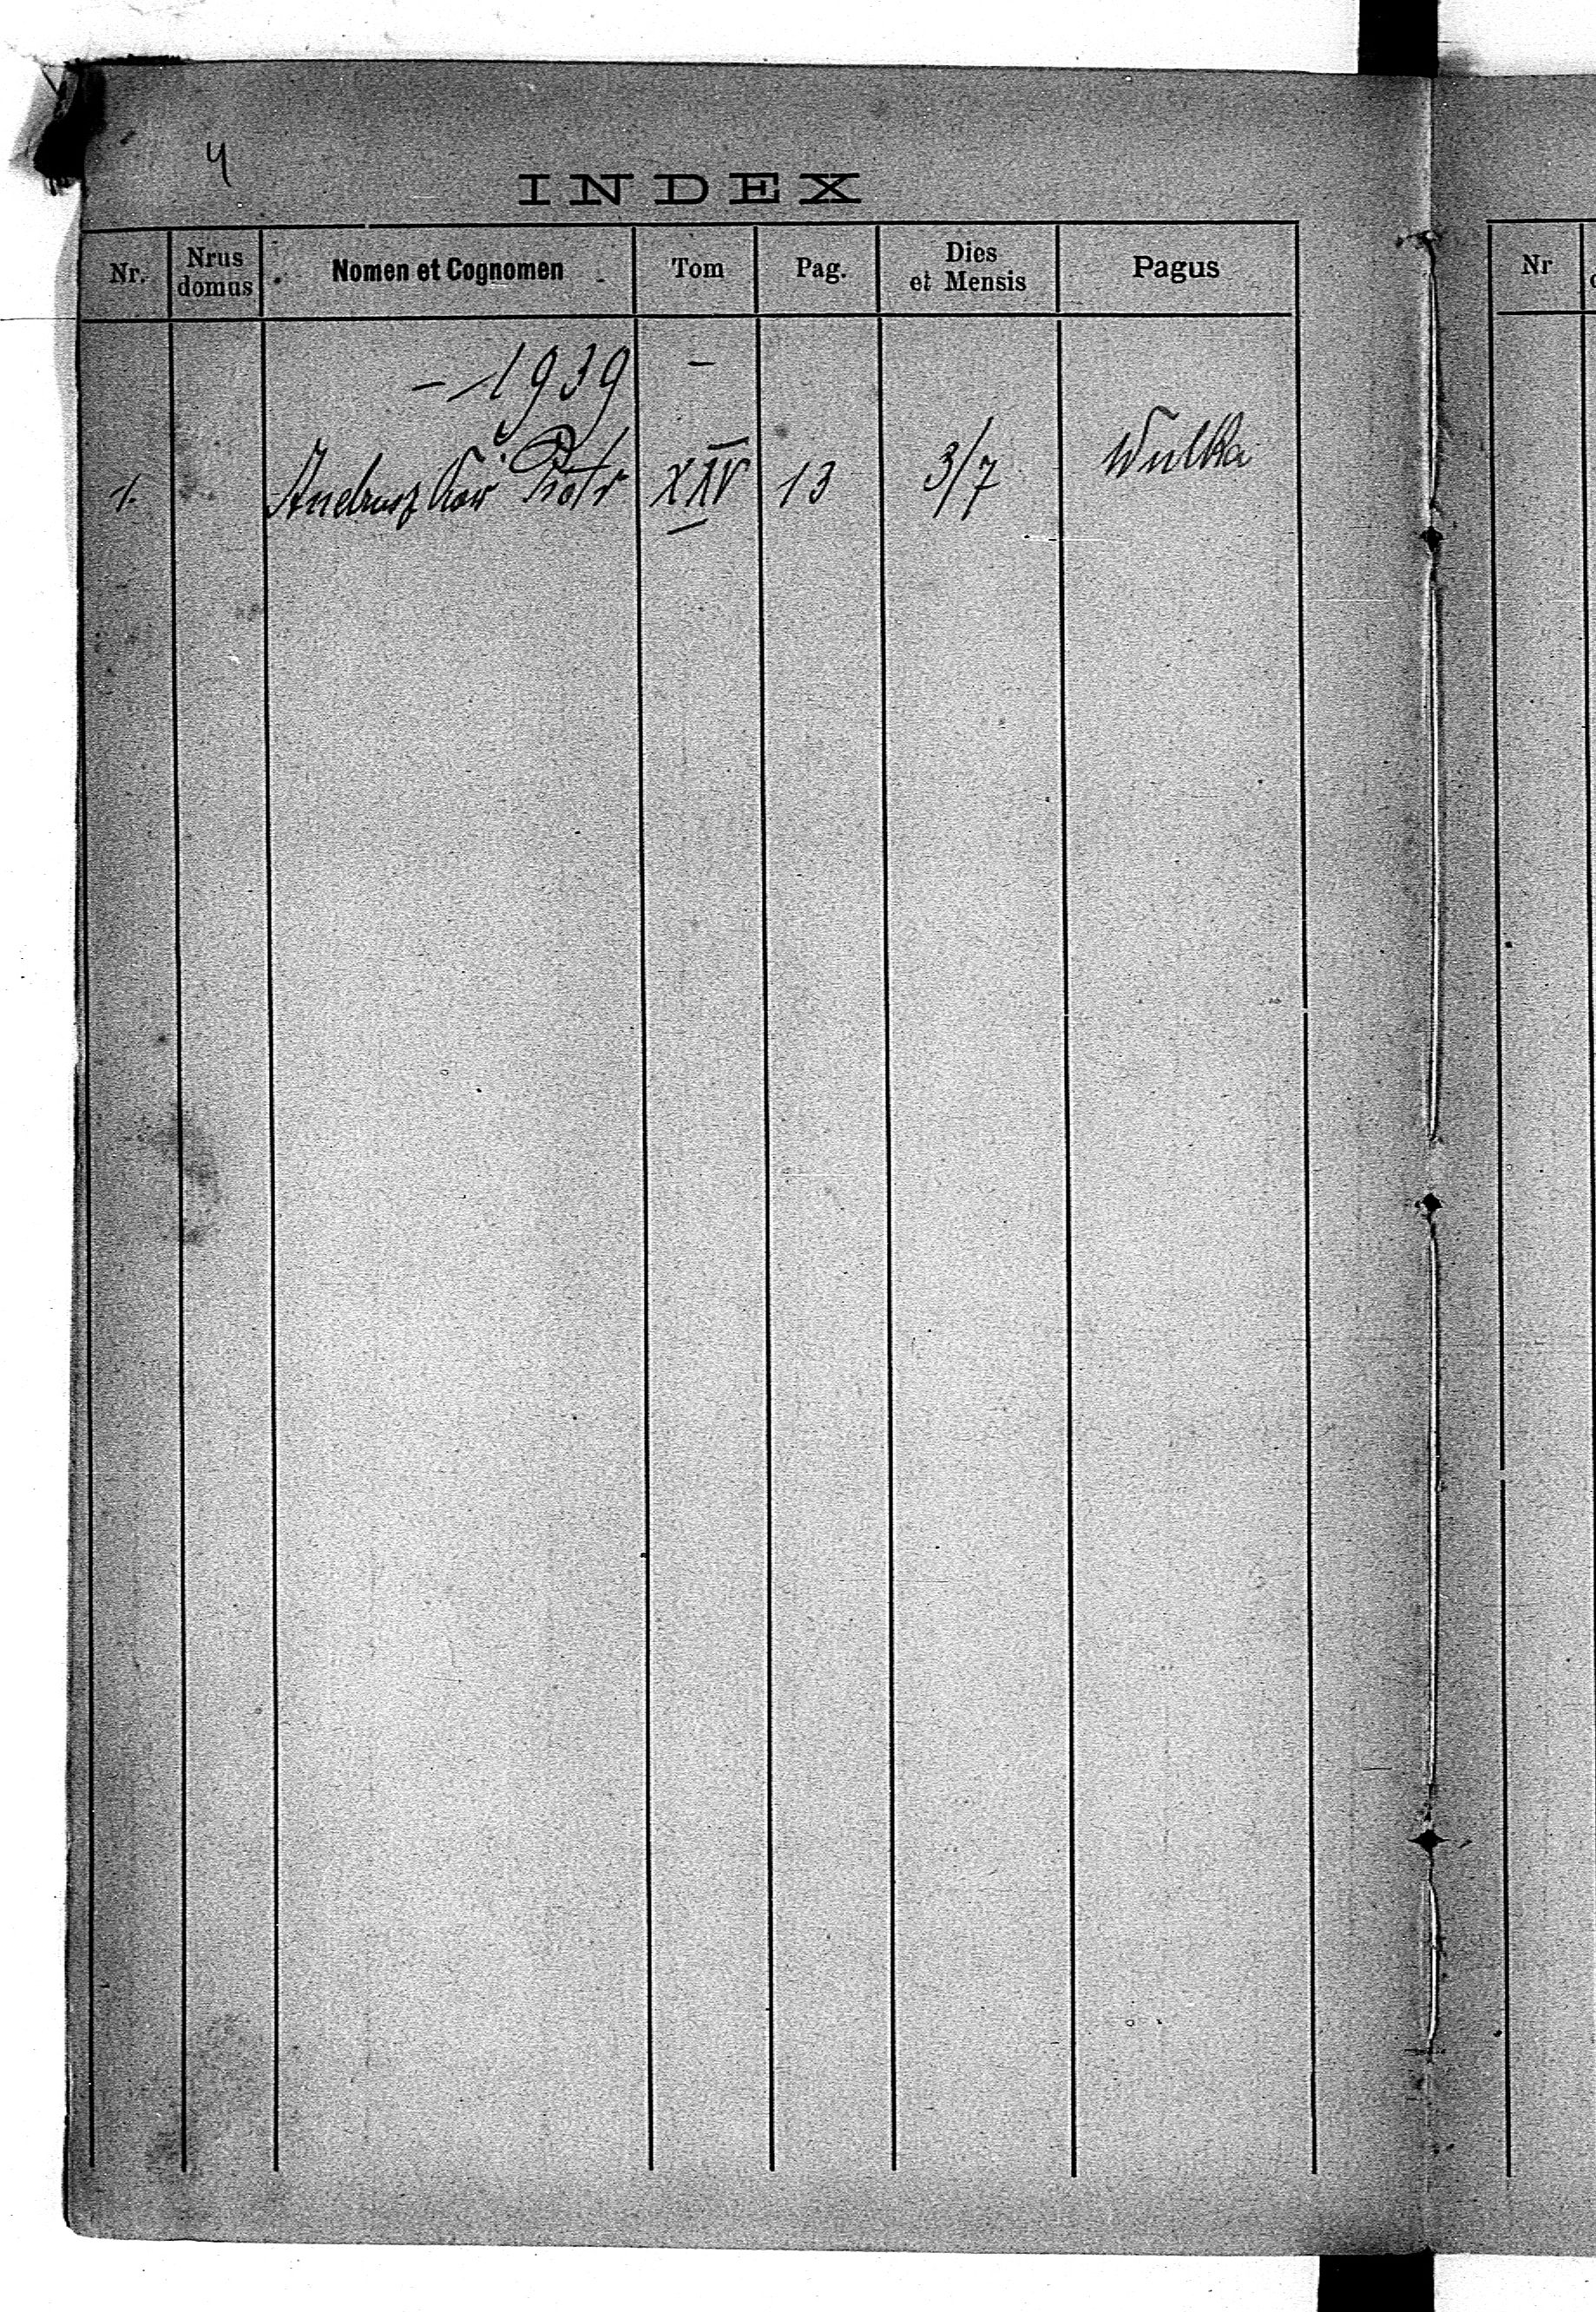 4
INDEX
Nr. Nrus domus Nomen et Cognomen Tom Pag. Dies et Mensis Pagus
– 1939 –
1. Andruszków Piotr XXV 13 3/7 Wulka
Nr